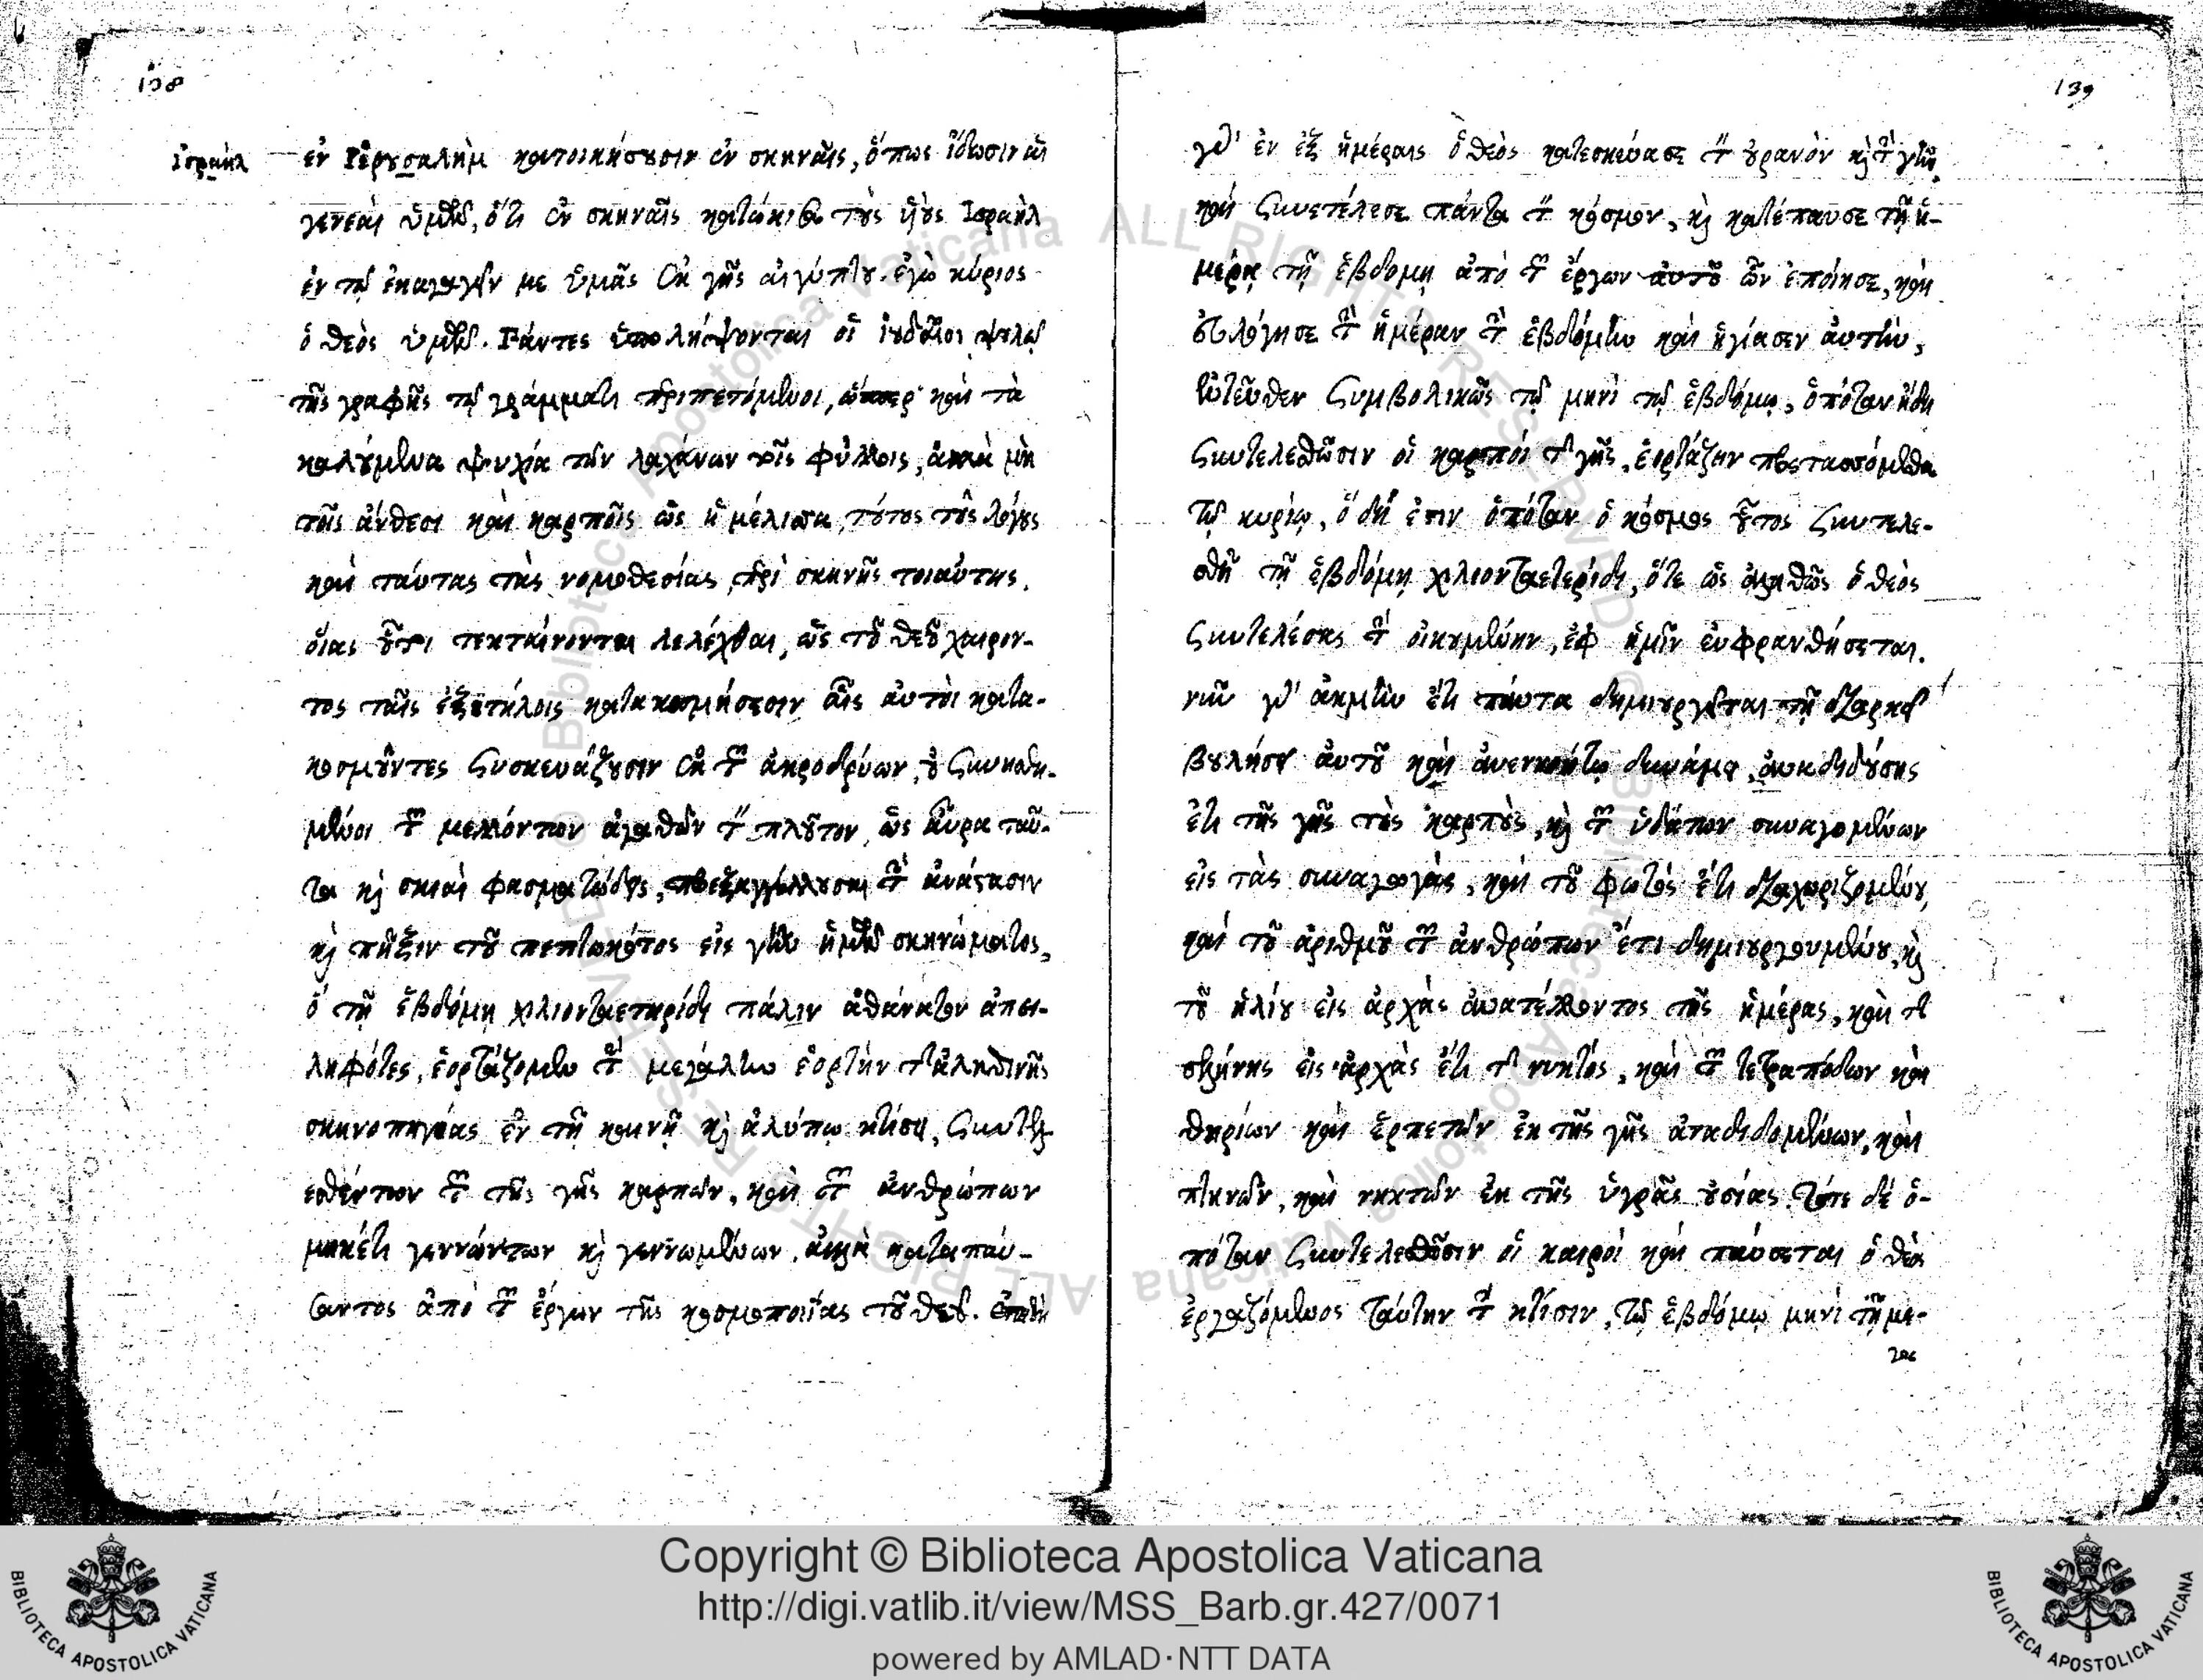 138
ἰσραὴλ
ἐν Ἱερουσαλὴμ κατοικήσουσιν ἐν σκηναῖς, ὅπως ἴδωσιν αἱ
γενεαὶ ὑμῶν, ὅτι ἐν σκηναῖς κατώκισα τοὺς υἱοὺς Ἰσραὴλ
ἐν τῷ ἐκαγαγεῖν με ὑμᾶς ἐκ γῆς αἰγύπτου. ἐγὼ κύριος
ὁ θεὸς ὑμῶν. Πάντες ὑπολήψονται οἱ ἰουδαῖοι ψιλῷ
τῆς γραφῆς τῷ γράμματι περιπετόμενοι, ὥσπερ καὶ τὰ
καλούμενα ψυχία τῶν λαχάνων τοῖς φύλλοις, ἀλλὰ μὴ
τοῖς ἄνθεσι καὶ καρποῖς ὡς ἡ μέλισσα, τούτους τοὺς λόγους
καὶ ταύτας τὰς νομοθεσίας περὶ σκηνῆς τοιαύτης,
οἵας οὗτοι τεκταίνονται λελέχθαι, ὡς τοῦ θεοῦ χαίρον-
τος ταῖς ἐξιτήλοις κατακοσμήσεσιν αἷς αὐτοὶ κατα-
κοσμοῦντες συσκευάζουσιν ἐκ τῶν ἀκροδρύων, οὐ συνιδη-
μένοι τῶν μελλόντων ἀγαθῶν τὸν πλοῦτον, ὡς αὖρα ταῦ-
τα καὶ σκιαὶ φασματώδεις, προεξαγγέλλουσαι τὴν ἀνάστασιν
καὶ πῆξιν τοῦ πεπτωκότος εἰς γῆν ἡμῶν σκηνώματος,
ὃ τῇ ἑβδόμῃ χιλιονταετηρίδι πάλιν ἀθάνατον ἀπει-
ληφότες, ἑορτάζομεν τὴν μεγάλην ἑορτὴν τῆς ἀληθινῆς
σκηνοπηγίας ἐν τῇ καινῇ καὶ ἀλύπῳ κτίσει, συντελ
εσθέντων τῶν τῆς γῆς καρπῶν, καὶ τῶν ἀνθρώπων
μηκέτι γεννώντων καὶ γεννωμένων, ἀλλὰ καταπαύ-
σαντος ἀπὸ τῶν ἔργων τῆς κοσμοποιΐας τοῦ θεοῦ. ἐπειδὴ
139
γὰρ ἐν ἓξ ἡμέραις ὁ θεὸς κατεσκεύασε τὸν οὐρανὸν καὶ τὴν γῆν,
καὶ συνετέλεσε πάντα τὸν κόσμον, καὶ κατέπαυσε τῇ ἡ-
μέρᾳ τῇ ἑβδόμῃ ἀπὸ τῶν ἔργων αὐτοῦ ὧν ἐποίησε, καὶ
εὐλόγησε τὴν ἡμέραν τὴν ἑβδόμην καὶ ἡγίασεν αὐτὴν,
ἐντεῦθεν συμβολικῶς τῷ μηνὶ τῷ ἑβδόμῳ, ὁπόταν ἤδη
συντελεσθῶσιν οἱ καρποὶ τῆς γῆς, ἑορτάζειν προστασσόμεθα
τῷ κυρίῳ, ὃ δή ἐστιν ὁπόταν ὁ κόσμος οὗτος συντελε-
σθῇ τῇ ἑβδόμῃ χιλιονταετηρίδι, ὅτε ὡς ἀληθῶς ὁ θεὸς
συντελέσας τὴν οἰκουμένην, ἐφ ἡμῖν εὐφρανθήσεται.
νῦν γὰρ ἀκμὴν ἔτι πάντα δημιουργεῖται τῇ διαρκεῖ
βουλήσει αὐτοῦ καὶ ἀνεννοήτῳ δυνάμει, ἀναδιδούσης
ἔτι τῆς γῆς τοὺς καρποὺς, καὶ τῶν ὑδάτων συναγομένων
εἰς τὰς συναγωγάς, καὶ τοῦ φωτὸς ἔτι διαχωριζομένου,
καὶ τοῦ ἀριθμοῦ τῶν ἀνθρώπων ἔτι δημιουργουμένου, καὶ
τοῦ ἡλίου εἰς ἀρχὰς ἀνατέλλοντος τῆς ἡμέρας, καὶ τῆς
σελήνης εἰς ἀρχὰς ἔτι τῆς νυκτός, καὶ τῶν τετραπόδων καὶ
θηρίων καὶ ἑρπετῶν ἐκ τῆς γῆς ἀναδιδομένων, καὶ
πτηνῶν, καὶ νηκτῶν ἐκ τῆς ὑγρᾶς οὐσίας. τότε δὲ ὁ-
πόταν συντελεσθῶσιν οἱ καιροὶ καὶ παύσεται ὁ θεὸς
ἐργαζόμενος ταύτην τὴν κτίσιν, τῷ ἑβδόμῳ μηνὶ τῇ με-
γάλῃ
Copyright © Biblioteca Apostolica Vaticana
http://digi.vatlib.it/view/MSS_Barb.gr.427/0071
powered by AMLAD·NTT DATA
BIBLIOTECA APOSTOLICA VATICANA
BIBLIOTECA APOSTOLICA VATICANA